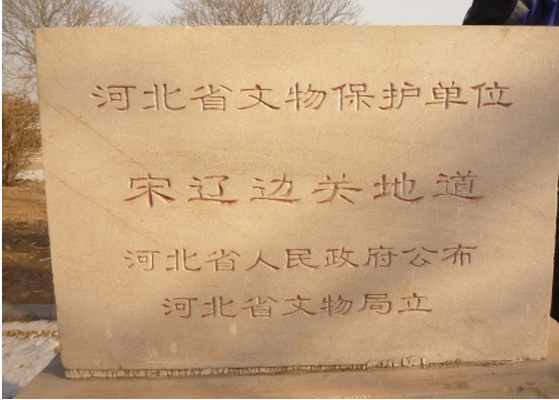 河北省文物保护单位
宋辽边关地道
河北省人民政府公布
河北省文物局立